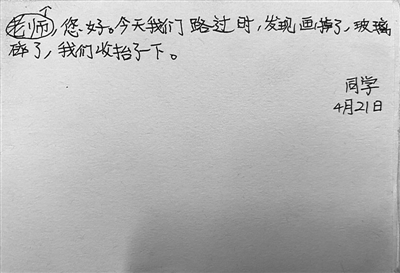 老师，您好。今天我们路过时，发现画掉了，玻璃
碎了，我们收拾了一下。
同学
4月21日